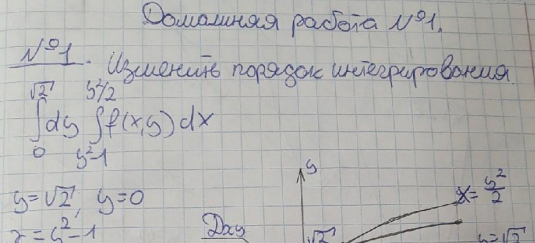 Домашняя работа №1.
№1. Изменить порядок интегрирования
√2 y²/2
∫dy ∫f(x,y)dx
0 y²-1
y=√2, y=0
x=y²-1
y
x=y²/2
√2
y=√2